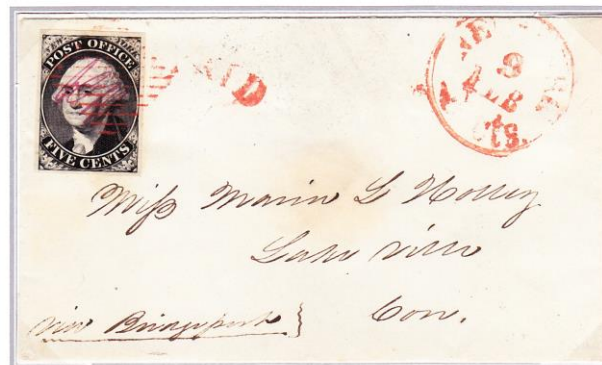 POST OFFICE
FIVE CENTS
PAID
9
FEB
cts.
Miss Maria L Holley
Lake Ville
Con.
via Bridgeport